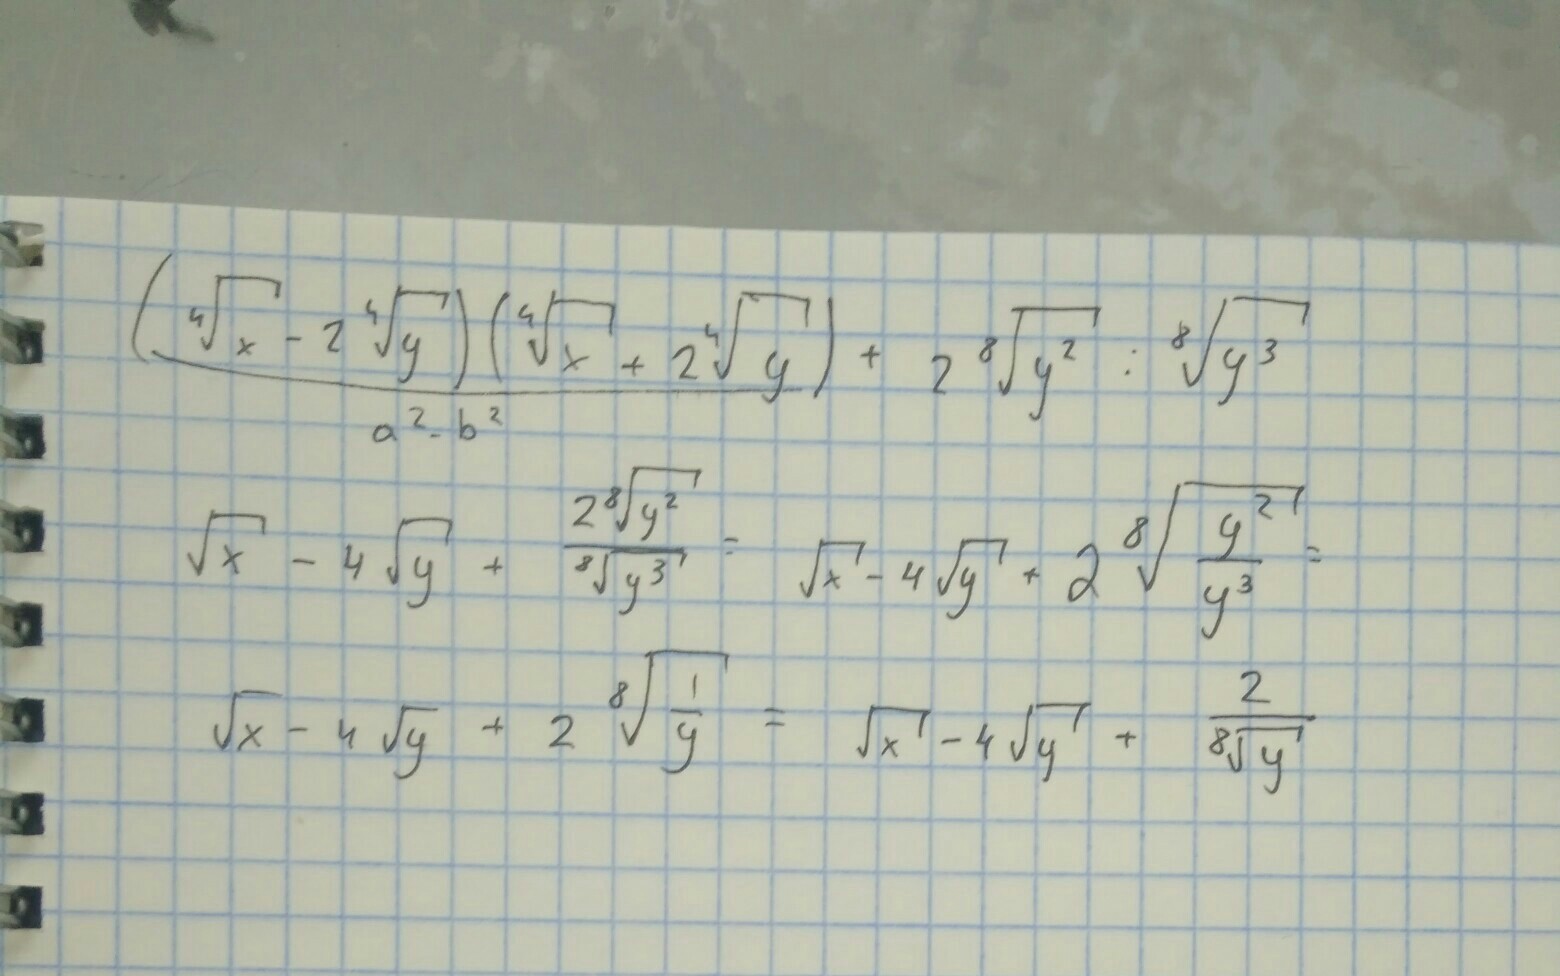 (⁴√x - 2 ⁴√y) (⁴√x + 2 ⁴√y) + 2 ⁸√y² : ⁸√y³
a² - b²
√x - 4√y + 2 ⁸√y² / ⁸√y³ = √x - 4√y + 2 ⁸√(y²/y³) =
√x - 4√y + 2 ⁸√(1/y) = √x - 4√y + 2/⁸√y